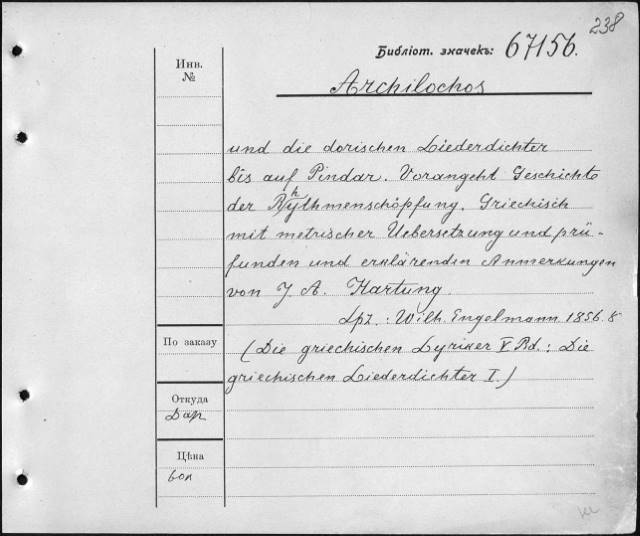 238
Библіот. значекъ: 67156.
Инв.
№
Archilochos
und die dorischen Liederdichter
bis auf Pindar. Vorangeht Geschichte
der Rhythmenschöpfung. Griechisch
mit metrischer Uebersetzung und prü-
funden und erklärenden Anmerkungen
von J. A. Hartung.
Lpz.: Wilh. Engelmann 1856. 8
По заказу
(Die griechischen Lyriker V Bd.: Die
griechischen Liederdichter I.)
Откуда
Дар
Цѣна
60к